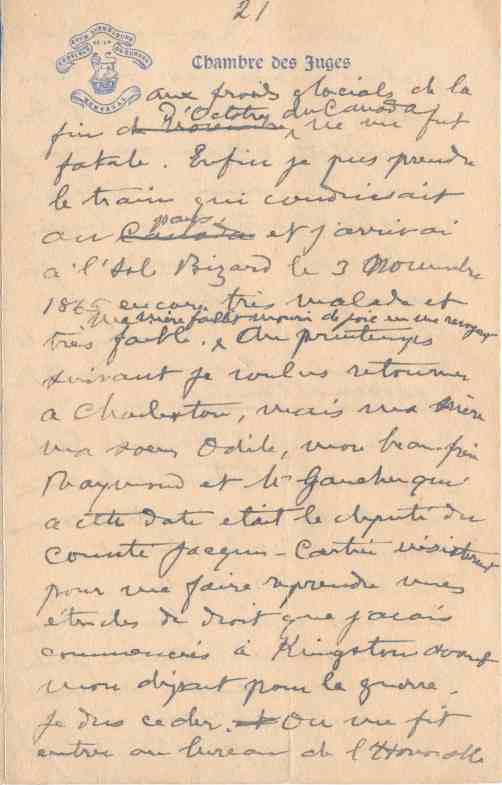 21
Chambre des Juges
MONTREAL
aux froids glacials de la
d'Octobre du Canada
fin de Novembre, ne me fut
fatale. Enfin je pus prendre
le train qui conduisait
pays,
au Canada et j'arrivai
à l'Isle Bizard le 3 Novembre
1865 encore très malade et
Ma mère faillit mourir de joie en me revoyant
très faible. Au printemps
suivant je voulus retourner
a Charleston, mais ma mère
ma soeur Odile, mon beau-frère
Raymond et Mr Gaucher qui
a cette date etait le député du
comté Jacques-Cartier insistèrent
pour me faire reprendre mes
études de droit que j'avais
commencées à Kingston avant
mon départ pour la guerre.
Je dus ceder. On me fit
entrer au bureau de l'Honorable